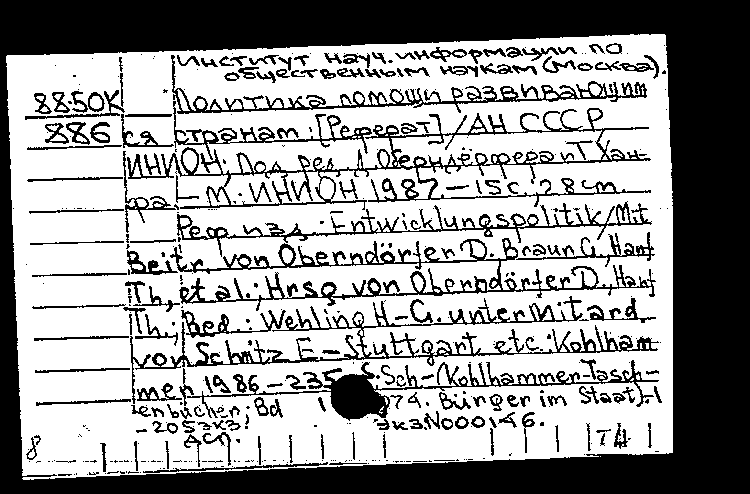 Институт науч. информации по
общественным наукам (Москва).
88-50К Политика помощи развивающим
886 ся странам: [Реферат] / АН СССР
ИНИОН; Под ред. Д. Оберндёрфера и Т. Хан-
фа — М.: ИНИОН, 1987. — 15 с.; 28 см.
Реф. изд.: Entwicklungspolitik / Mit
Beitr. von Oberndörfer D. Braun G., Hanf
Th., et al.; Hrsg. von Oberndörfer D., Hanf
Th.; Bed.: Wehling H.-G. unter Mitard.
von Schmitz E — Stuttgart etc.: Kohlham
mer, 1986 — 235 S. Sch-(Kohlhammer-Tasch-
enbücher; Bd 1 074. Bürger im Staat). 1
— 205 экз. Экз N000146.
ДСП.
8 T4